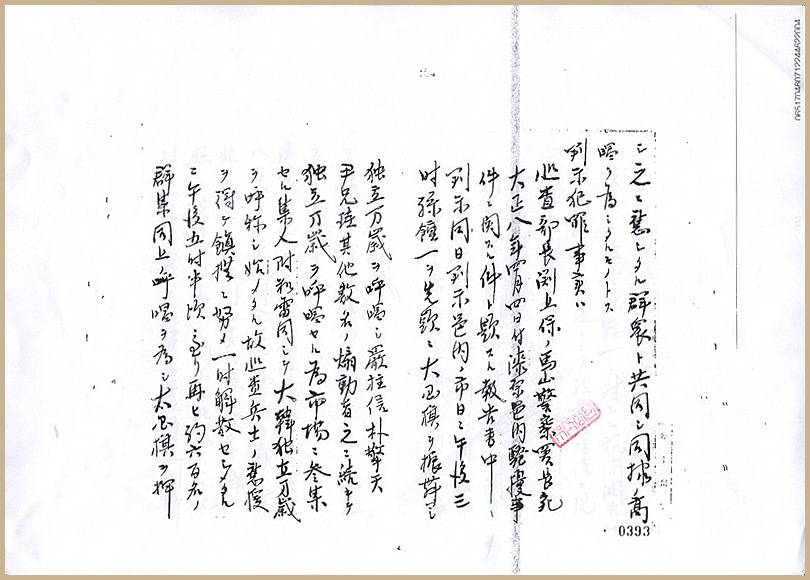 シ之ニ應シタル群衆ト共同シ同様高
唱ヲ為シタルモノトス
判示犯罪事実ハ
巡査部長渕上保ノ馬山警察署長宛
大正八年四月四日付漆原邑内騒擾事
件ニ関スル件ト題スル報告書中ニ
判示同日判示邑内ノ市日ニ午後三
時孫鍾一ヲ先頭ニ大旗ヲ振蒔シ
独立万歳ヲ呼唱シ嚴柱信朴擎天
尹兄珪其他数名ノ煽動者之ニ続キテ
独立万歳ヲ呼唱セル為市場ニ参集
セル集人附和雷同シテ大韓独立万歳
ヲ呼称シ始メタル故巡査兵士ノ應援
ヲ得テ鎮撫ニ努メ一時解散セシメタル
ニ午後五時半頃ニ至リ再ヒ約六百名ノ
群集同上呼唱ヲ為シ太旗ヲ揮
0393
0651704607122446220004